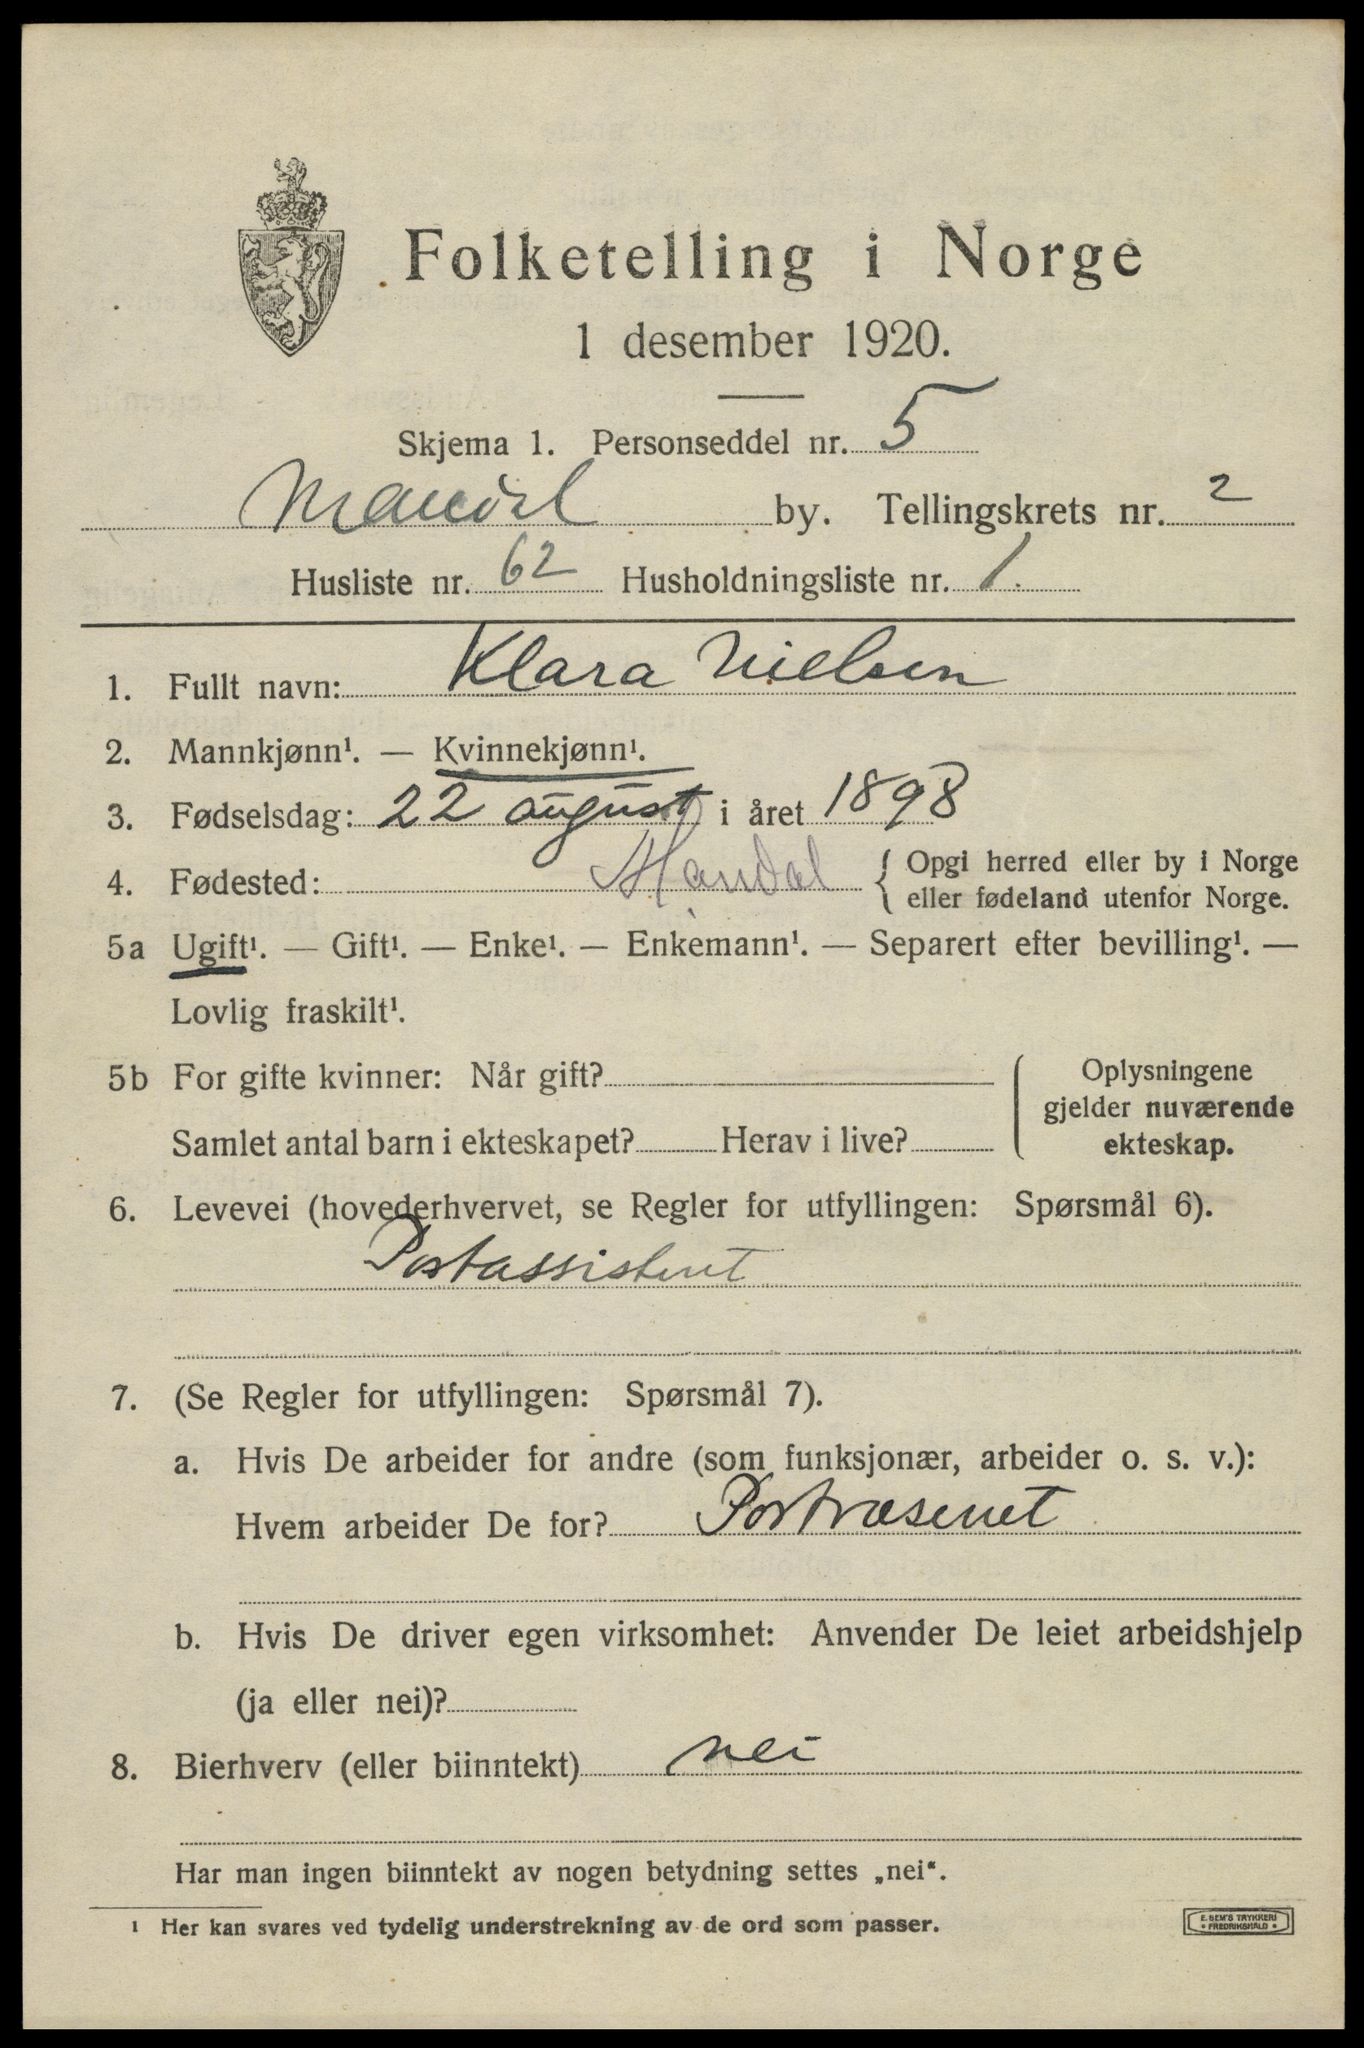 Folketelling i Norge
1 desember 1920.
Skjema 1. Personseddel nr. 5
Mandal by. Tellingskrets nr. 2
Husliste nr. 62 Husholdningsliste nr. 1.
1. Fullt navn: Klara Nielsen
2. Mannkjønn¹. — Kvinnekjønn¹.
3. Fødselsdag: 22 august i året 1898
4. Fødested: Mandal { Opgi herred eller by i Norge
eller fødeland utenfor Norge.
5a Ugift¹. — Gift¹. — Enke¹. — Enkemann¹. — Separert efter bevilling¹. —
Lovlig fraskilt¹.
5b For gifte kvinner: Når gift?
Samlet antal barn i ekteskapet? Herav i live?
Oplysningene
gjelder nuværende
ekteskap.
6. Levevei (hovederhvervet, se Regler for utfyllingen: Spørsmål 6).
Postassistent
7. (Se Regler for utfyllingen: Spørsmål 7).
a. Hvis De arbeider for andre (som funksjonær, arbeider o. s. v.):
Hvem arbeider De for? Postvæsenet
b. Hvis De driver egen virksomhet: Anvender De leiet arbeidshjelp
(ja eller nei)?
8. Bierhverv (eller biinntekt) nei
Har man ingen biinntekt av nogen betydning settes „nei“.
¹ Her kan svares ved tydelig understrekning av de ord som passer.
E. SEM'S TRYKKERI
• FREDRIKSHALD •